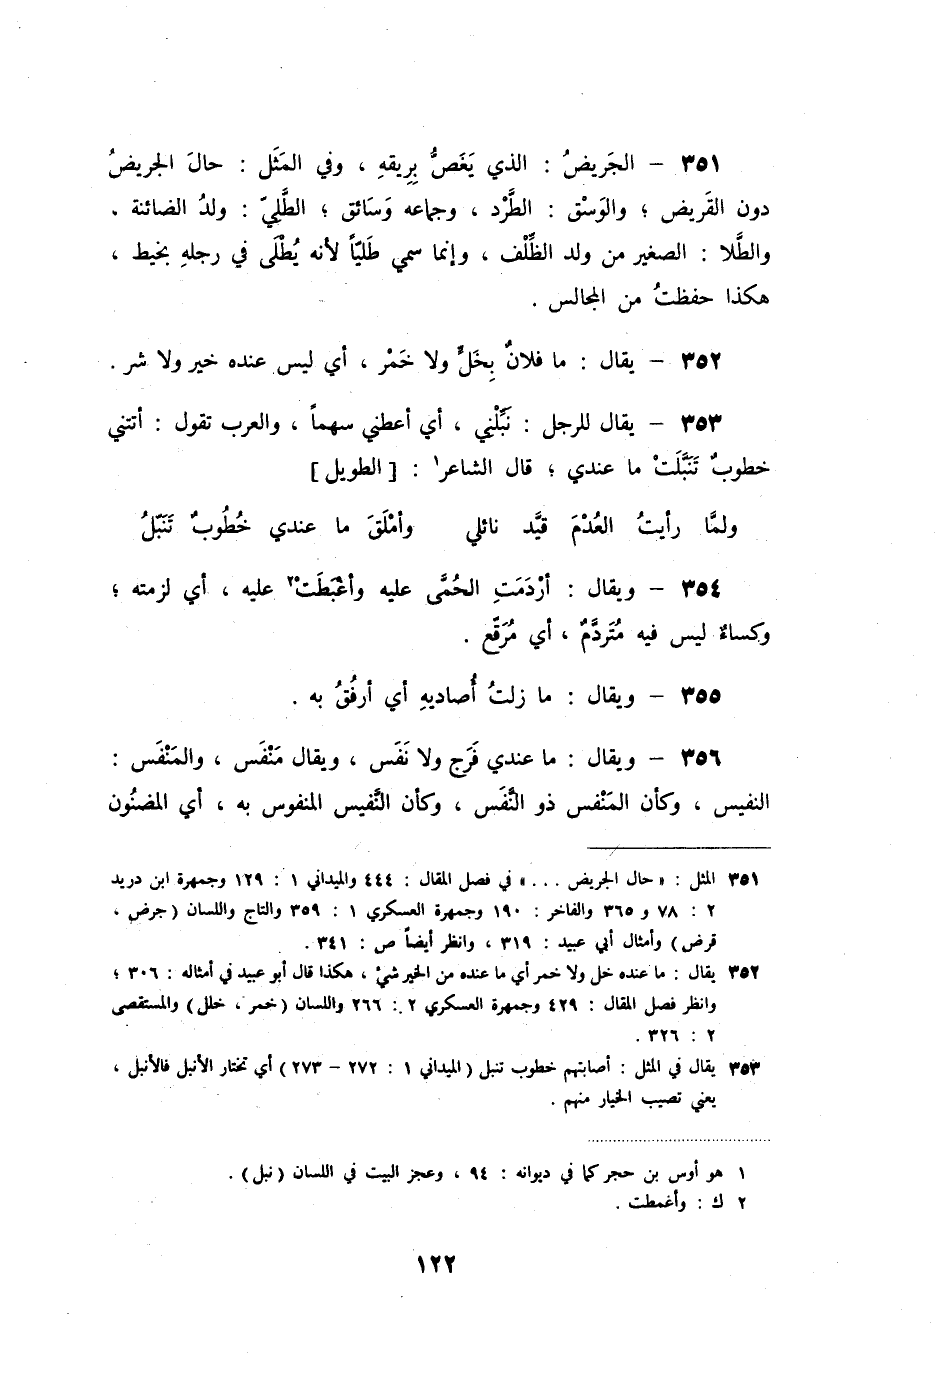 ٣٥١ – الجَريضُ : الذي يَغَصُّ بِرِيقهِ ، وفي المَثَل : حالَ الجريضُ
دون القَريض ؛ والوَسْق : الطَّرْد ، وجماعه وَسَائق ؛ الطَّلِيّ : ولدُ الضائنة .
والطَّلا : الصغير من ولد الظِّلْف ، وإنما سمي طَلِيّاً لأنه يُطْلَى في رجلهِ بخيط ،
هكذا حفظتُ من المجالس .
٣٥٢ – يقال : ما فلانٌ بِخَلٍّ ولا خَمْر ، أي ليس عنده خير ولا شر .
٣٥٣ – يقال للرجل : نَبِّلْني ، أي أعطني سهماً ، والعرب تقول : أتتني
خطوبٌ تَنَبَّلَتْ ما عندي ؛ قال الشاعر١ : [ الطويل ]
ولمَّا رأيتُ العُدْمَ قيَّد نائلي وأمْلَقَ ما عندي خُطُوبٌ تَنَبّلُ
٣٥٤ – ويقال : أرْدَمَتِ الحُمَّى عليه وأغْبَطَتْ٢ عليه ، أي لزمته ؛
وكساءٌ ليس فيه مُتَردَّمٌ ، أي مُرَقّع .
٣٥٥ – ويقال : ما زلتُ أُصاديهِ أي أرفُقُ به .
٣٥٦ – ويقال : ما عندي فَرَج ولا نَفَس ، ويقال مَنْفَس ، والمَنْفَس :
النفيس ، وكأن المَنْفس ذو النَّفَس ، وكأن النَّفيس المنفوس به ، أي المضنُون
٣٥١ المثل : « حال الجريض . . . » في فصل المقال : ٤٤٤ والميداني ١ : ١٢٩ وجمهرة ابن دريد
٢ : ٧٨ و ٣٦٥ والفاخر : ١٩٠ وجمهرة العسكري ١ : ٣٥٩ والتاج واللسان ( جرض ،
قرض ) وأمثال أبي عبيد : ٣١٩ ، وانظر أيضاً ص : ٣٤١ .
٣٥٢ يقال : ما عنده خل ولا خمر أي ما عنده من الخير شيء ، هكذا قال أبو عبيد في أمثاله : ٣٠٦ ؛
وانظر فصل المقال : ٤٢٩ وجمهرة العسكري ٢ : ٢٦٦ واللسان ( خمر ، خلل ) والمستقصى
٢ : ٣٢٦ .
٣٥٣ يقال في المثل : أصابتهم خطوب تنبل ( الميداني ١ : ٢٧٢ – ٢٧٣ ) أي تختار الأنبل فالأنبل ،
يعني تصيب الخيار منهم .
١ هو أوس بن حجر كما في ديوانه : ٩٤ ، وعجز البيت في اللسان ( نبل ) .
٢ ك : وأغمطت .
١٢٢